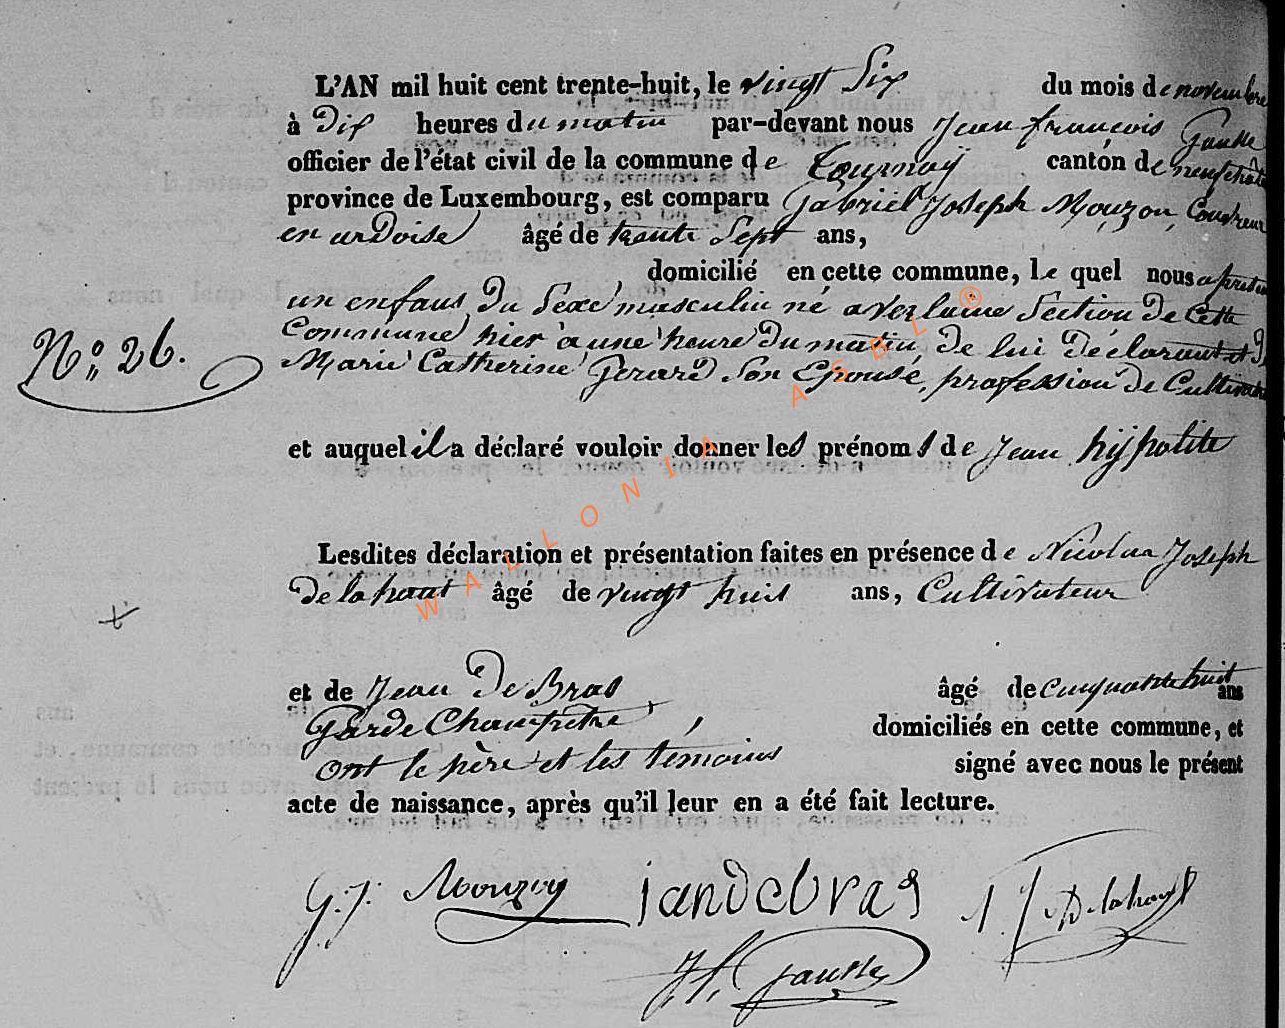 L'AN mil huit cent trente-huit, le vingt Six du mois de novembre
à Dix heures du matin par-devant nous Jean françois Gausse
officier de l'état civil de la commune de Tournaÿ canton de neufchâte
province de Luxembourg, est comparu Gabriel Joseph Mouzon, Couvreur
en ardoise âgé de trente Sept ans,
domicilié en cette commune, le quel nous a présenté
un enfans du Sexe masculin né a Verlaine Section de Cette
Commune hier à une heure du matin, de lui Déclarant et De
N.º 26.
Marie Catherine Gerard Son Epouse, profession de Cultivatrice
et auquel il a déclaré vouloir donner les prénoms de Jean hÿpolite
Lesdites déclaration et présentation faites en présence de Nicolas Joseph
Delahaut âgé de vingt huit ans, Cultivateur
et de Jean DeBras âgé de cinquante huit ans
Garde Champetre, domiciliés en cette commune, et
ont le père et les témoins signé avec nous le présent
acte de naissance, après qu'il leur en a été fait lecture.
G. J. Mouzon jandebras N. J. Delahaut
J. f. Gausse
WALLONIA ASBL ®